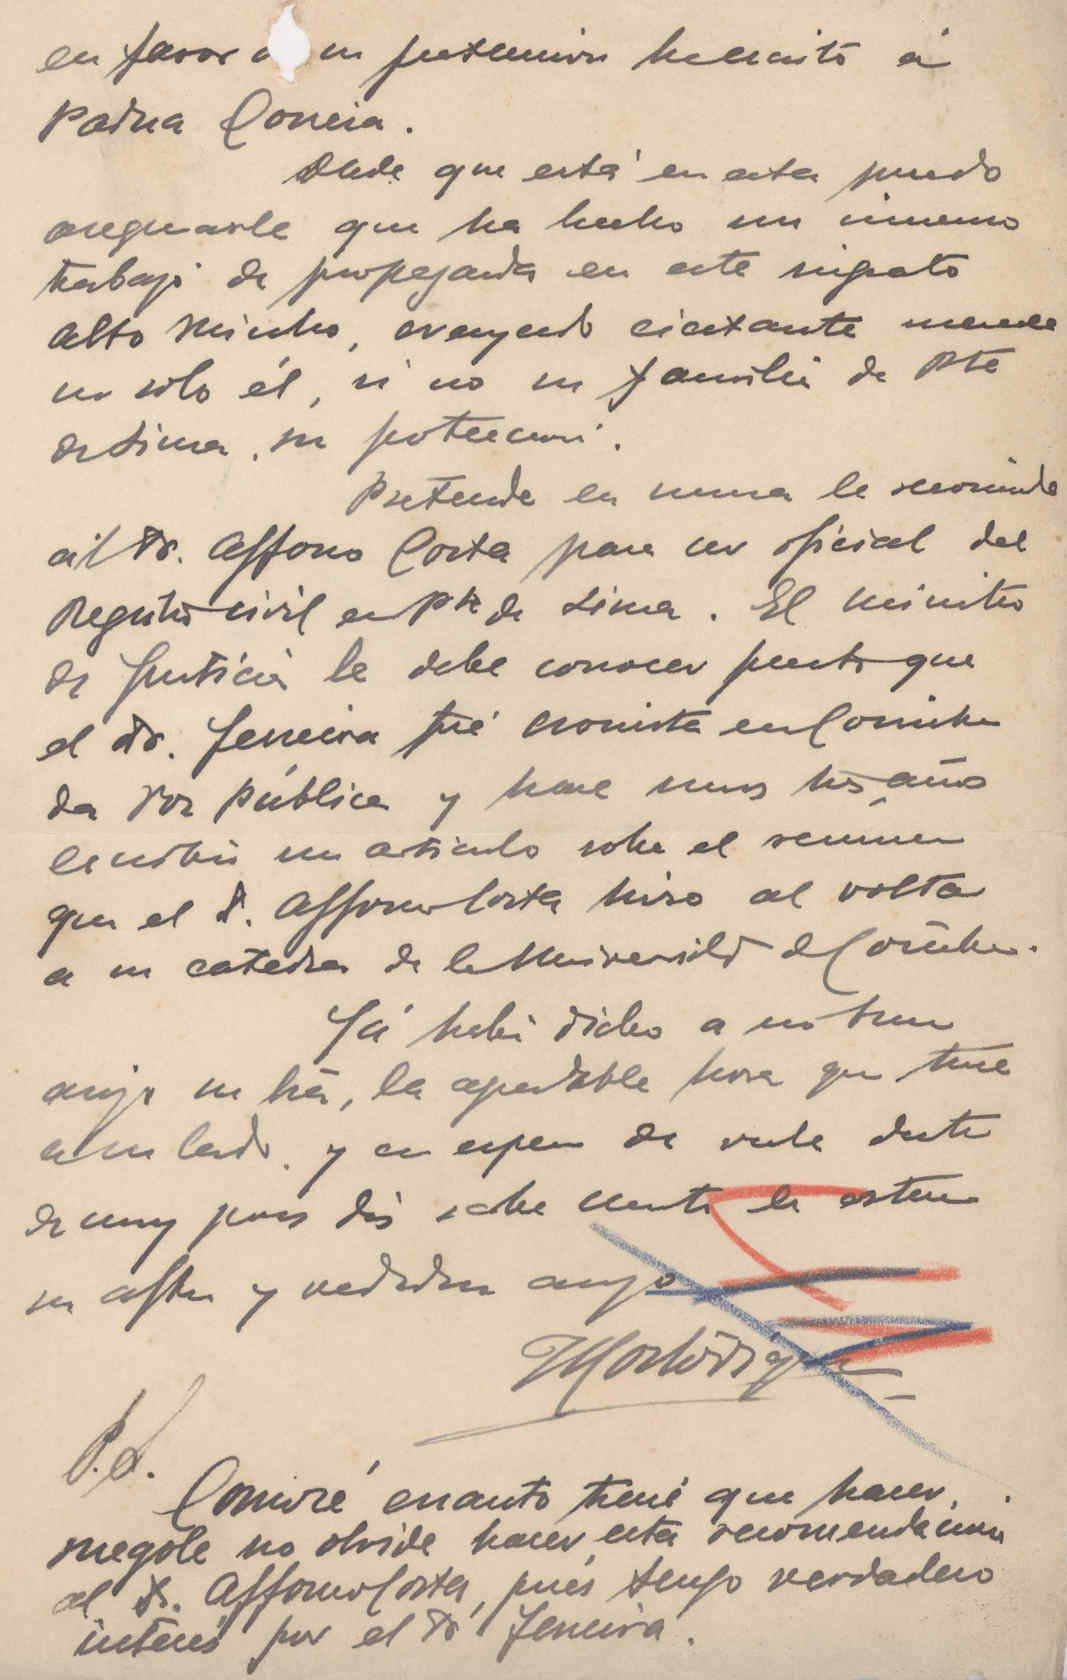 en favor d su pretension he escrito á
Padua Correia.
Desde que está en esta puedo
asegurarle que ha hecho un inmenso
trabajo de propaganda en este ingrato
alto Minho, creyendo merece
no solo él, si no su familia de Pte
de Lima, su proteccion.
Pretende en suma le recomiende
al Dr. Affonso Costa para ser oficial del
Registro civil en Pte de Lima. El ministro
de Justicia le debe conocer puesto que
el Dr. Ferreira fué cronista en Coimbra
da Voz Pública y hace unos tres años
escribió un articulo sobre el
que el Dr. Affonso Costa hizo al volta
a su catedra de la Universidad de Coimbra.
Yá habia dicho a nostro
amigo la agradable hora que tuve
a su lado, y en espera de verle dentro
de muy pocos dias sabe cuanto le estima
su afftmo y verdadero amigo
P.S.
Comiré cuanto tiene que hacer,
ruegole no olvide hacer esta recomendacion
al Dr. Affonso Costa, pués tengo verdadero
interés por el Dr Ferreira.